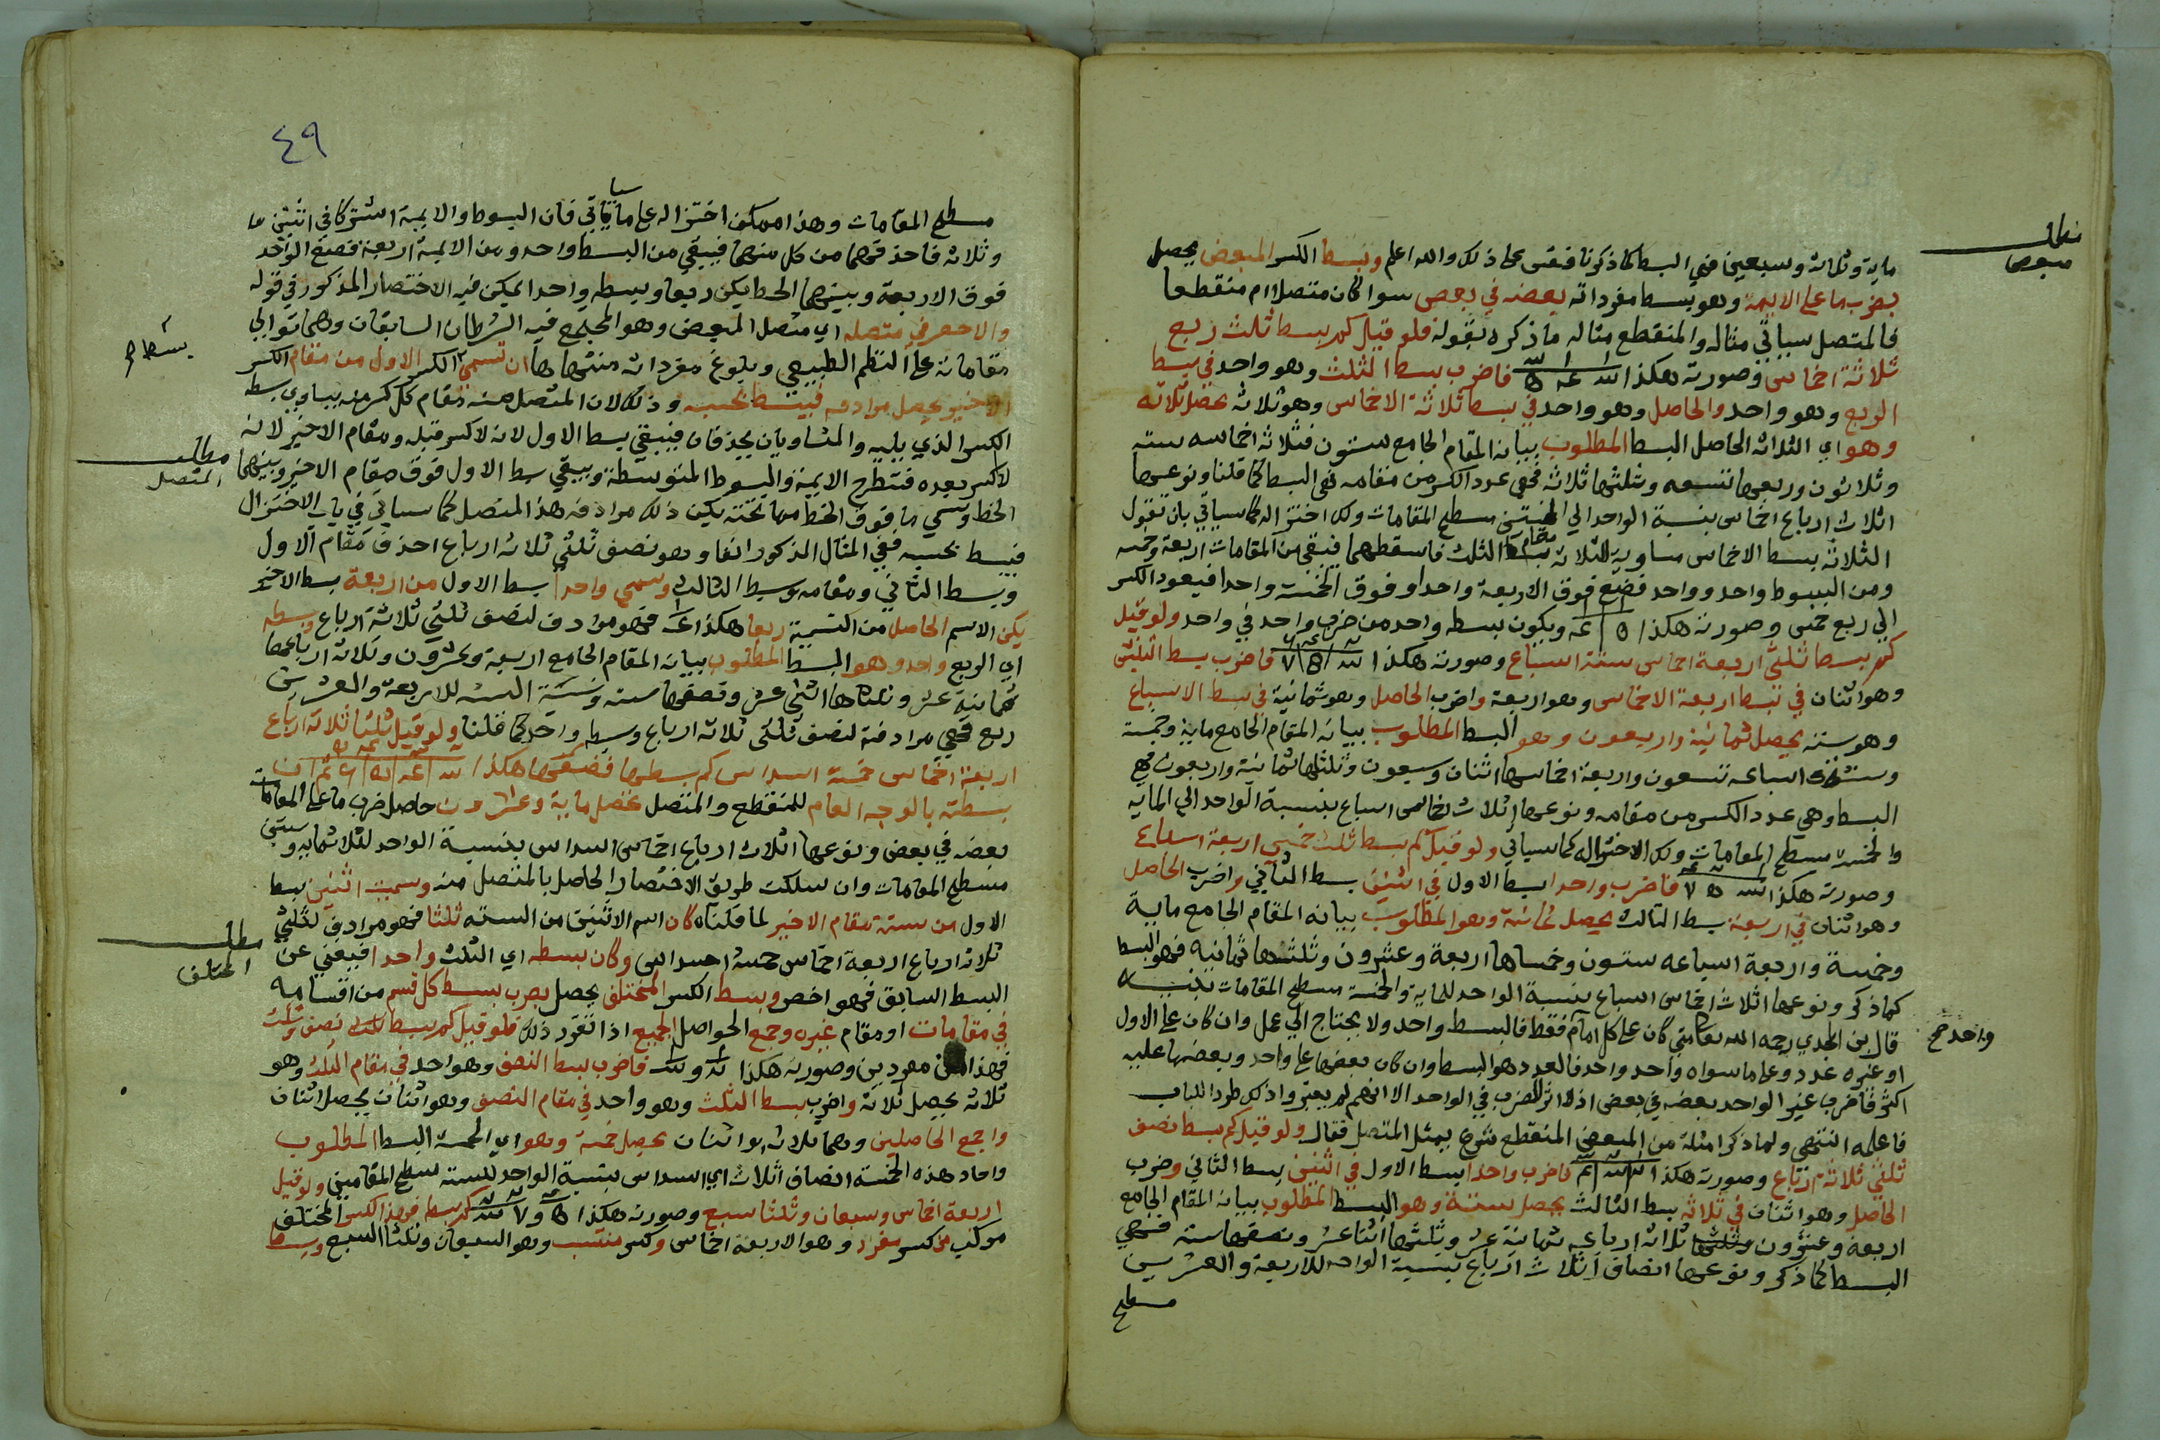 مطلب
مبعض
ماية وثلاثة وسبعين فهي البسط كما ذكرنا فقس على ذلك والله اعلم وبسط الكسر المبعض يحصل
بضرب ما على الايمة وهو بسط مفرداته بعضه في بعض سوا كان متصلا ام منقطعا
فالمتصل سياتي مثاله والمنقطع مثاله ما ذكره بقوله فلو قيل كم بسط ثلث ربع
ثلاثة اخماس وصورته هكذا فاضرب بسط الثلث وهو واحد في بسط
الربع وهو واحد والحاصل وهو واحد في بسط ثلاثة الاخماس وهو ثلاثة يحصل ثلاثة
وهو اي الثلاثة الحاصل البسط المطلوب بيانه المقام الجامع ستون فثلاثة اخماسه ستة
وثلاثون وربعها تسعه وثلثها ثلاثة فهي عدد الكسر من مقامه فهي البسط كما قلنا ونوعها
اثلاث ارباع اخماس بنسبة الواحد الي الستين مسطح المقامات ولك اختزاله كما سياتي بان تقول
الثلاثة بسط الاخماس مساوية للثلاثة مقام الثلث فاسقطهما فيبقي من المقامات اربعة وخمسه
ومن البسوط واحد وواحد فضع فوق الاربعة واحدا وفوق الخمسة واحدا فيعود الكسر
الي ربع خمس وصورته هكذا ويكون بسطه واحد من ضرب واحد في واحد ولو قيل
كم بسط ثلثي اربعة اخماس ستة اسباع وصورته هكذا فاضرب بسط الثلثين
وهو اثنان في بسط اربعة الاخماس وهو اربعة واضرب الحاصل وهو ثمانية في بسط الاسباع
وهو ستة يحصل ثمانية واربعون وهو البسط المطلوب بيانه المقام الجامع ماية وخمسة
وستة اسباعه تسعون واربعة اخماسها اثنان وسبعون وثلثاها ثمانية واربعون فهي
البسط وهي عدد الكسر من مقامه ونوعها اثلاث اخماس اسباع بنسبة الواحد الي الماية
والخمسة مسطح المقامات ولك الاختزال كما سياتي ولو قيل كم بسط ثلث خمسي اربعة اسباع
وصورته هكذا فاضرب واحدا بسط الاول في اثنين بسط الثاني واضرب الحاصل
وهو اثنان في اربعة بسط الثالث يحصل ثمانية وهو المطلوب بيانه المقام الجامع ماية
وخمسة واربعة اسباعه ستون وخمساها اربعة وعشرون وثلثها ثمانيه فهو البسط
كما ذكر ونوعها اثلاث اخماس اسباع بنسبة الواحد للماية والخمسة مسطح المقامات
قال بن المجدي رحمه الله تعالى متي كان على كل امام فقط فالبسط واحد ولا يحتاج الي عمل وان كان على الاول
واحد صح
او غيره عدد وعلى ما سواه واحد واحد فالعدد هو البسط وان كان بعضها على واحد وبعضها عليه
اكثر فاضرب غير الواحد بعضه في بعض اذ لا اثر للضرب في الواحد الا انهم لم يعتبروا ذلك طردا للباب
فاعلمه انتهي ولما ذكر امثلة من المبعض المنقطع شرع يمثل المتصل فقال ولو قيل كم بسط نصف
ثلثي ثلاثة ارباع وصورته هكذا فاضرب واحدا بسط الاول في اثنين بسط الثاني وضرب
الحاصل وهو اثنان في ثلاثة بسط الثالث يحصل ستة وهو البسط المطلوب بيانه المقام الجامع
اربعة وعشرون ثلاثة ارباعه ثمانية عشر وثلثها اثنا عشر ونصفها ستة فهي
البسط كما ذكر ونوعها انصاف اثلاث ارباع بنسبة الواحد للاربعة والعشرين
مسطح
٤٩
مسطح المقامات وهذا ممكن اختزاله على ما سياتي فان البسوط والايمة اشتركا في اثنين
وثلاثة فاحذفهما من كل منهما فيبقي من البسط واحد ومن الايمة اربعة فضع الواحد
فوق الاربعة وبينهما الخط يكن ربعا وبسطه واحدا يمكن فيه الاختصار المذكور في قوله
والاحصر في متصله اي متصل المبعض وهو المجتمع فيه الشرطان السابقان وهما توالي
مقاماته على النظم الطبيعي وبلوغ مفرداته منتهاها ان تسمي الكسر الاول من مقام الكسر
الاخير يحصل مرادفه فيبسط بحسبه وذلك لان المتصل منه مقام كل كسر منه يساوي بسط
الكسر الذي يليه والمتساويان يحذفان فيبقي بسط الاول لانه لا كسر قبله ومقام الاخير لانه
مطلب
المتصل
لا كسر بعده فتطرح الايمة والبسوط المتوسطة ويبقي بسط الاول فوق مقام الاخير وبينهما
الخط وسمي ما فوق الخط مما تحته يكن ذلك مرادفه هذا المتصل كما سياتي في باب الاختزال
فيبسط بحسبه ففي المثال المذكور انفا وهو نصف ثلثي ثلاثة ارباع احذف مقام الاول
وبسط الثاني ومقامه وبسط الثالث وسمي واحدا بسط الاول من اربعة بسط الاخير
يكن الاسم الحاصل من التسمية ربعا هكذا فهو مرادف لنصف ثلثي ثلاثة ارباع وبسطه
اي الربع واحد وهو البسط المطلوب بيانه المقام الجامع اربعة وعشرون وثلاثة ارباعها
ثمانية عشر وثلثاها اثني عشر ونصفها ستة ونسبة الستة للاربعة والعشرين
ربع فهي مرادفة لنصف ثلثي ثلاثة ارباع وبسطه واحد كما قلنا ولو قيل ثلثا ثلاثة ارباع
اربعة اخماس خمسة اسداس كم بسطها فضعها هكذا ثم ان
بسطته بالوجه العام للمنقطع والمتصل تحصل ماية وعشرون حاصل ضرب ما على المقامات
بعضه في بعض ونوعها اثلاث ارباع اخماس اسداس بنسبة الواحد لثلاثماية وستين
مسطح المقامات وان سلكت طريق الاختصار الحاصل بالمتصل منه وسميت اثنين بسط
الاول من ستة مقام الاخير لما قلناه كان اسم الاثنين من الستة ثلثا فهو مرادف لثلثي
ثلاثة ارباع اربعة اخماس خمسة اسداس وكان بسطه اي الثلث واحدا فيغني عن
مطلب
المختلف
البسط السابق فهو اخصر وبسط الكسر المختلف يحصل بضرب بسط كل قسم من اقسامه
في مقامات او مقام غيره وجمع الحواصل الجميع اذا تقرر ذلك فلو قيل كم بسط نصف وثلث
فهذا من مفردين وصورته هكذا فاضرب بسط النصف وهو واحد في مقام الثلث وهو
ثلاثة يحصل ثلاثة واضرب بسط الثلث وهو واحد في مقام النصف وهو اثنان يحصل اثنان
واجمع الحاصلين وهما ثلاثة واثنان يحصل خمسة وهو اي الخمسة البسط المطلوب
واحاد هذه الخمسة انصاف اثلاث اي اسداس بنسبة الواحد للستة مسطح المقامين ولو قيل
اربعة اخماس وسبعان وثلثا سبع وصورته هكذا كم بسطه فهذا الكسر المختلف
مركب من كسر مفرد وهو الاربعة اخماس وكسر منتسب وهو السبعان وثلثا السبع وبسط